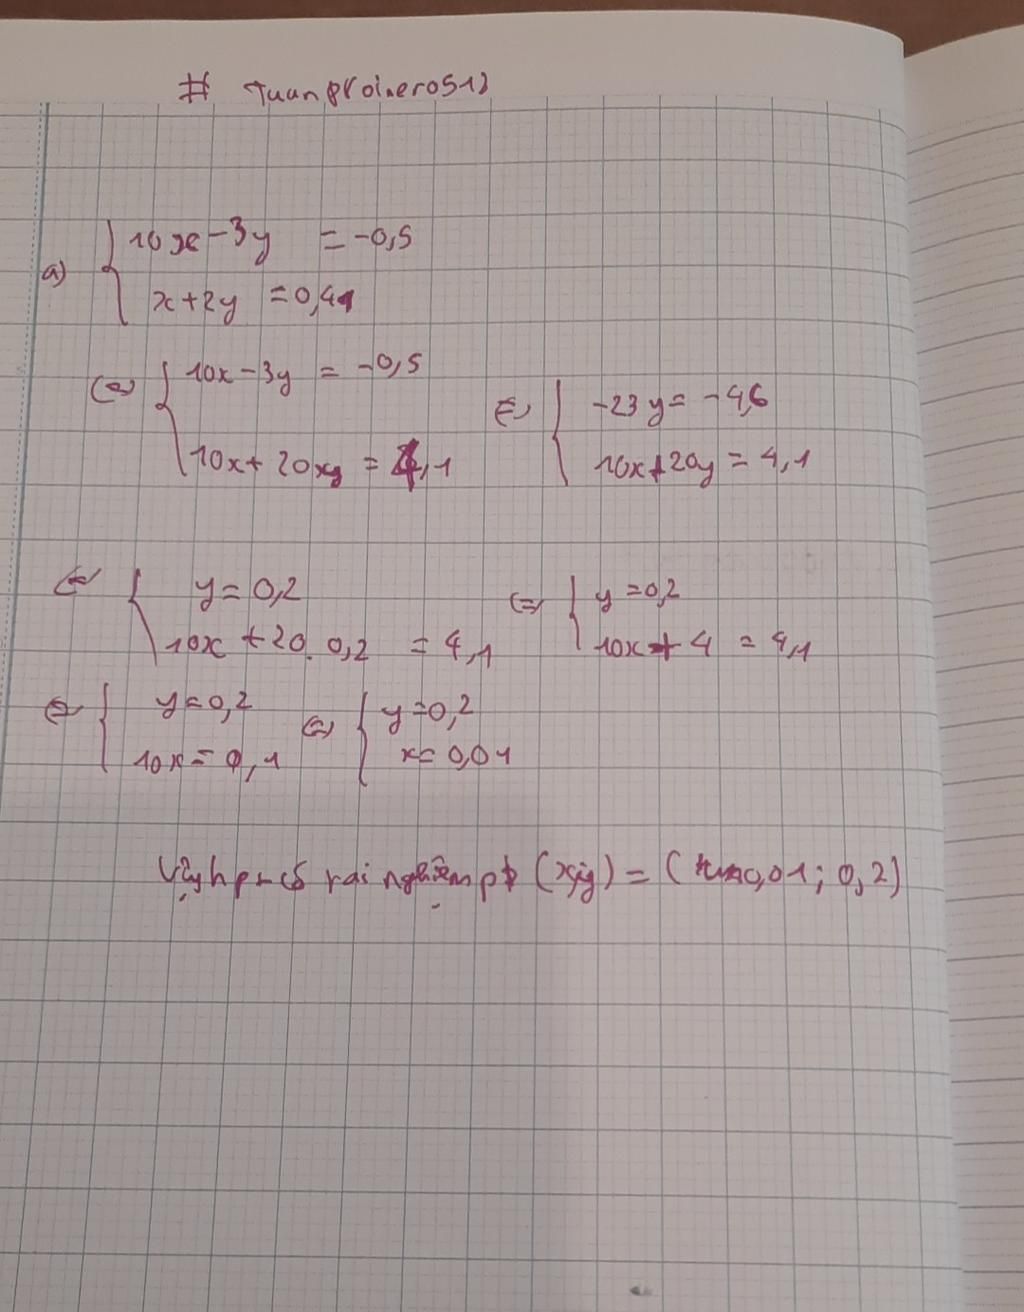 # Tuanproinero512
a) { 10x - 3y = -0,5
x + 2y = 0,41
(=) { 10x - 3y = -0,5
10x + 20xy = 4,1
(=) { -23y = -4,6
10x + 20y = 4,1
(=) { y = 0,2
10x + 20. 0,2 = 4,1
(=) { y = 0,2
10x + 4 = 4,1
(=) { y = 0,2
10x = 0,1
(=) { y = 0,2
x = 0,01
Vậy có nghiệm (x;y) = ( 0,01; 0,2)